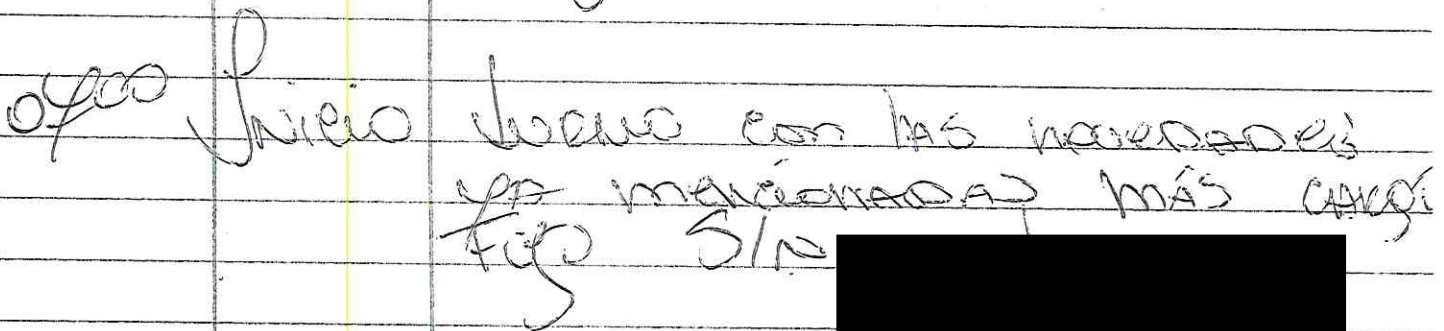 0700 Inicio turno con las novedades
ya mencionadas más cargo
Fijo S/N